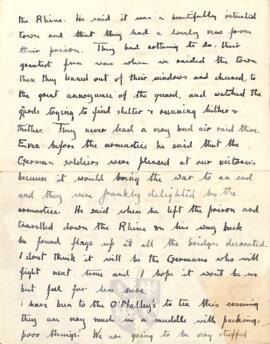 the Rhine. He said it was a beautifully situated
town and that they had a lovely view from
their prison. They had nothing to do, their
greatest fun was when we raided the town
then they leaned out of their windows and cheered, to
the great annoyance of the guard, and watched the
guards trying to find shelter & running hither &
thither. They never had a very bad air raid there.
Even before the armistice he said that the
German soldiers were pleased at our victories
because it would bring the war to an end
and they were frankly delighted by the
armistice. He said when he left the prison and
travelled down the Rhine on his way back
he found flags up & all the bridges decorated.
I dont think it will be the Germans who will
fight next time and I hope it wont be us
but feel far less sure.
I have been to the O'Malley's to tea this evening
they are very much in a muddle with packing,
poor things. We are going to be very